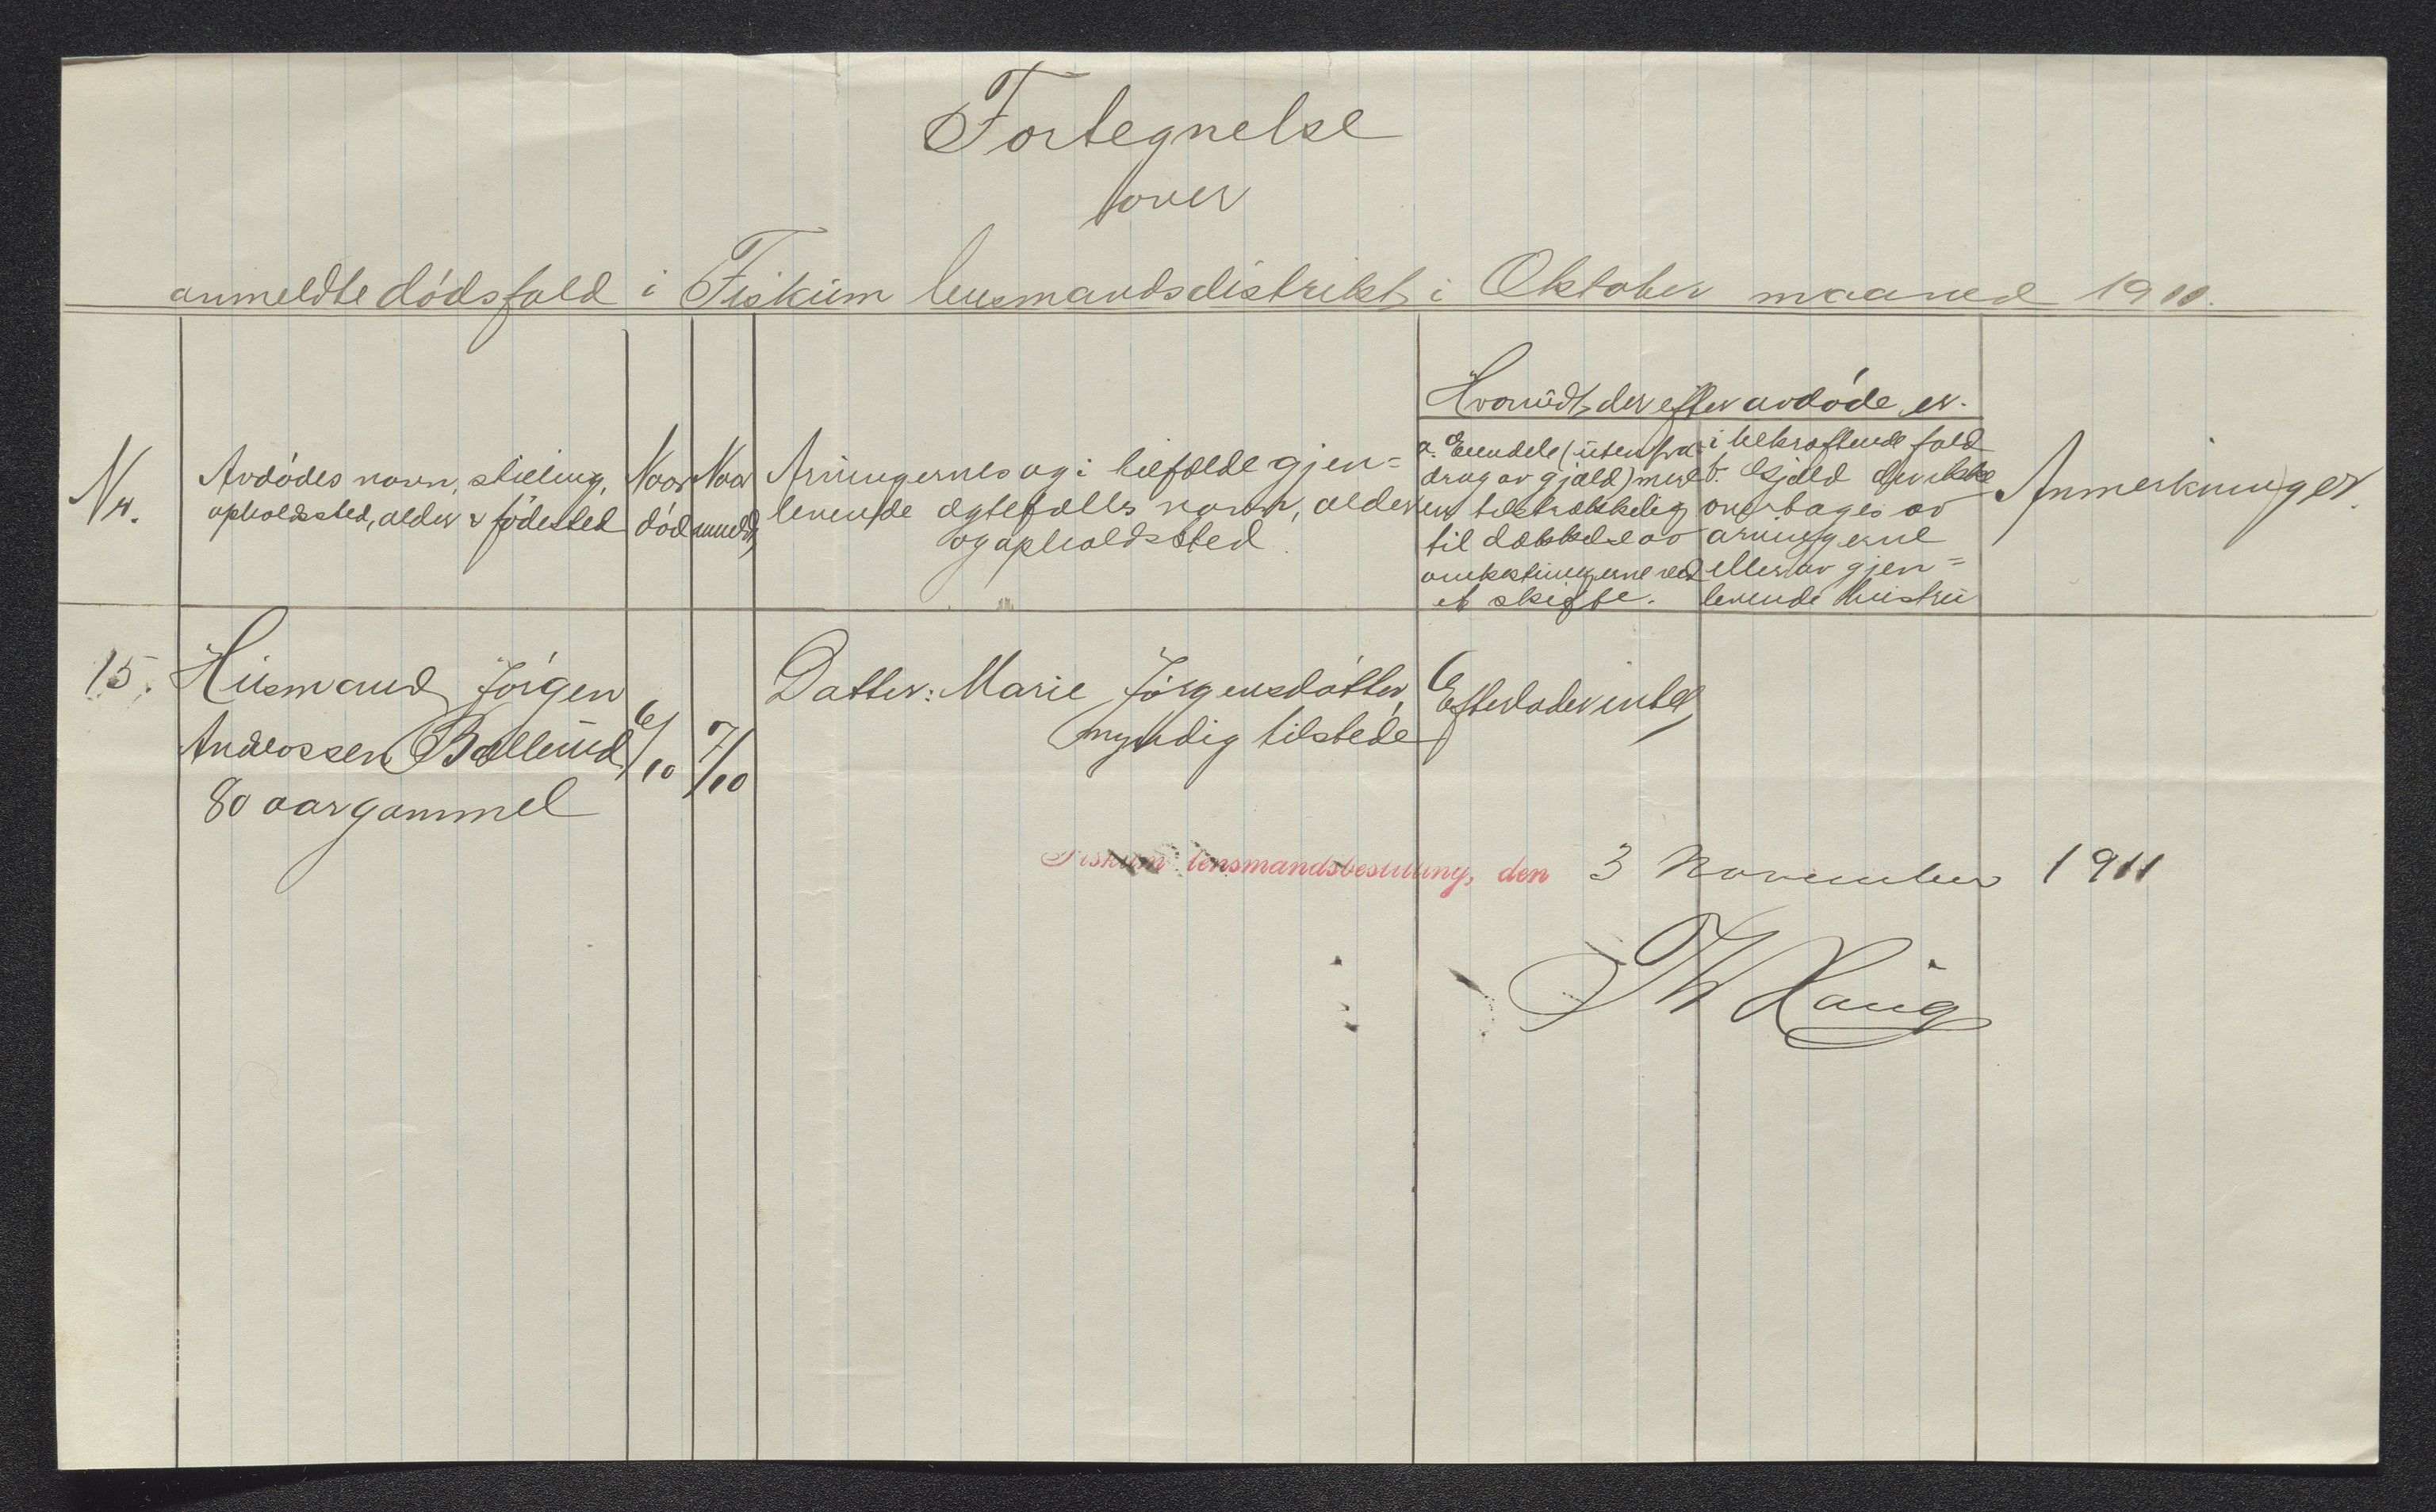 Fortegnelse
over
anmeldte dödsfald i Fiskum lensmandsdistrikt i Oktober maaned 1911.
Nr.
Avdödes navn, stilling,
opholdssted, alder & födested
Naar
död
Naar
anmeldt
Arvingernes og i tilfælde gjen=
levende ægtefælles navn, alder
og opholdssted
Hvorvidt der efter avdöde er.
a. Eiendele (uten fra-
drag av gjæld) mere
en tilstrækkelig
til dækkelse av
omkostningerne ved
et skifte.
i bekræftende fald
b. Gjæld der ikke
overtages av
arvingerne
eller av gjen=
levende hustru
Anmerkninger.
15.
Husmand Jörgen
Andreassen Ballerud
80 aar gammel
6/10
7/10
Datter: Marie Jörgensdatter,
myndig tilstede
Efterlader intet
Fiskum lensmandsbestilling, den 3 November 1911
Th Haug